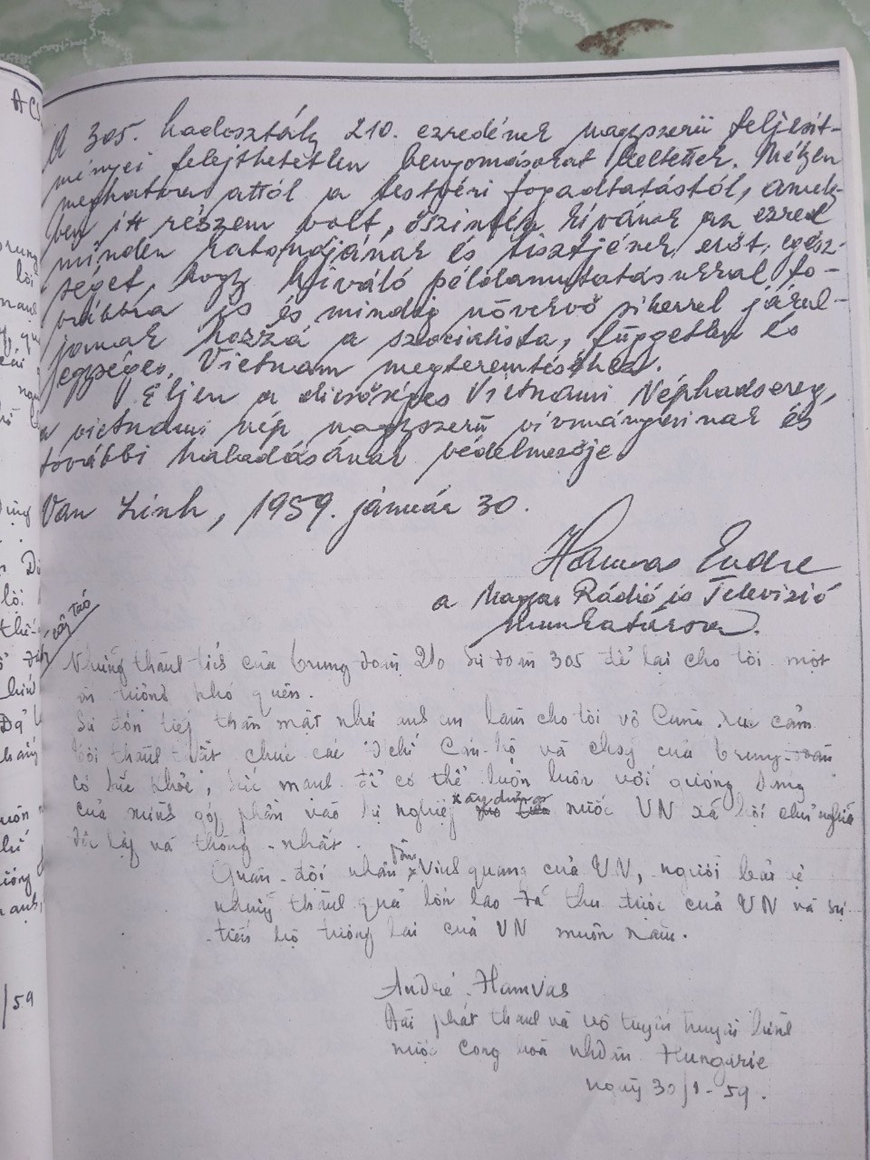 A 305. hadosztály 210. ezredének nagyszerű teljesít-
ményei felejthetetlen benyomásokat keltettek. Mélyen
meghatva attól a testvéri fogadtatástól, amely-
ben itt részem volt, őszintén kívánok az ezred
minden katonájának és tisztjének erőt, egész-
séget, hogy kiváló példamutatásukkal to-
vábbra is és mindig növekvő sikerrel járul-
janak hozzá a szocialista, független és
egységes Vietnam megteremtéséhez.
Éljen a dicsőséges Vietnami Néphadsereg,
a vietnami nép nagyszerű vívmányainak és
további haladásának védelmezője
Van Linh, 1959. január 30.
Hamvas Endre
a Magyar Rádió és Televízió
munkatársa.
Những thành tích của trung đoàn 210 sư đoàn 305 để lại cho tôi một
ấn tượng khó quên.
Sự đón tiếp thân mật như anh em làm cho tôi vô cùng xúc cảm
Tôi thành thật chúc các đ/chí Cán-bộ và chsỹ của trung-đoàn
có sức khỏe, sức mạnh để có thể luôn luôn với gương
của mình góp phần vào sự nghiệp xây dựng nước VN xã hội chủ nghĩa
độc lập và thống-nhất.
Quân-đội nhân dân Vinh quang của VN, người bảo vệ
những thành quả lớn lao đã thu được của VN và sự
tiến bộ tương lai của VN muôn năm.
André Hamvas
Đài phát thanh và vô tuyến truyền hình
nước Cộng hoà nhdân Hungarie
ngày 30/1-59.